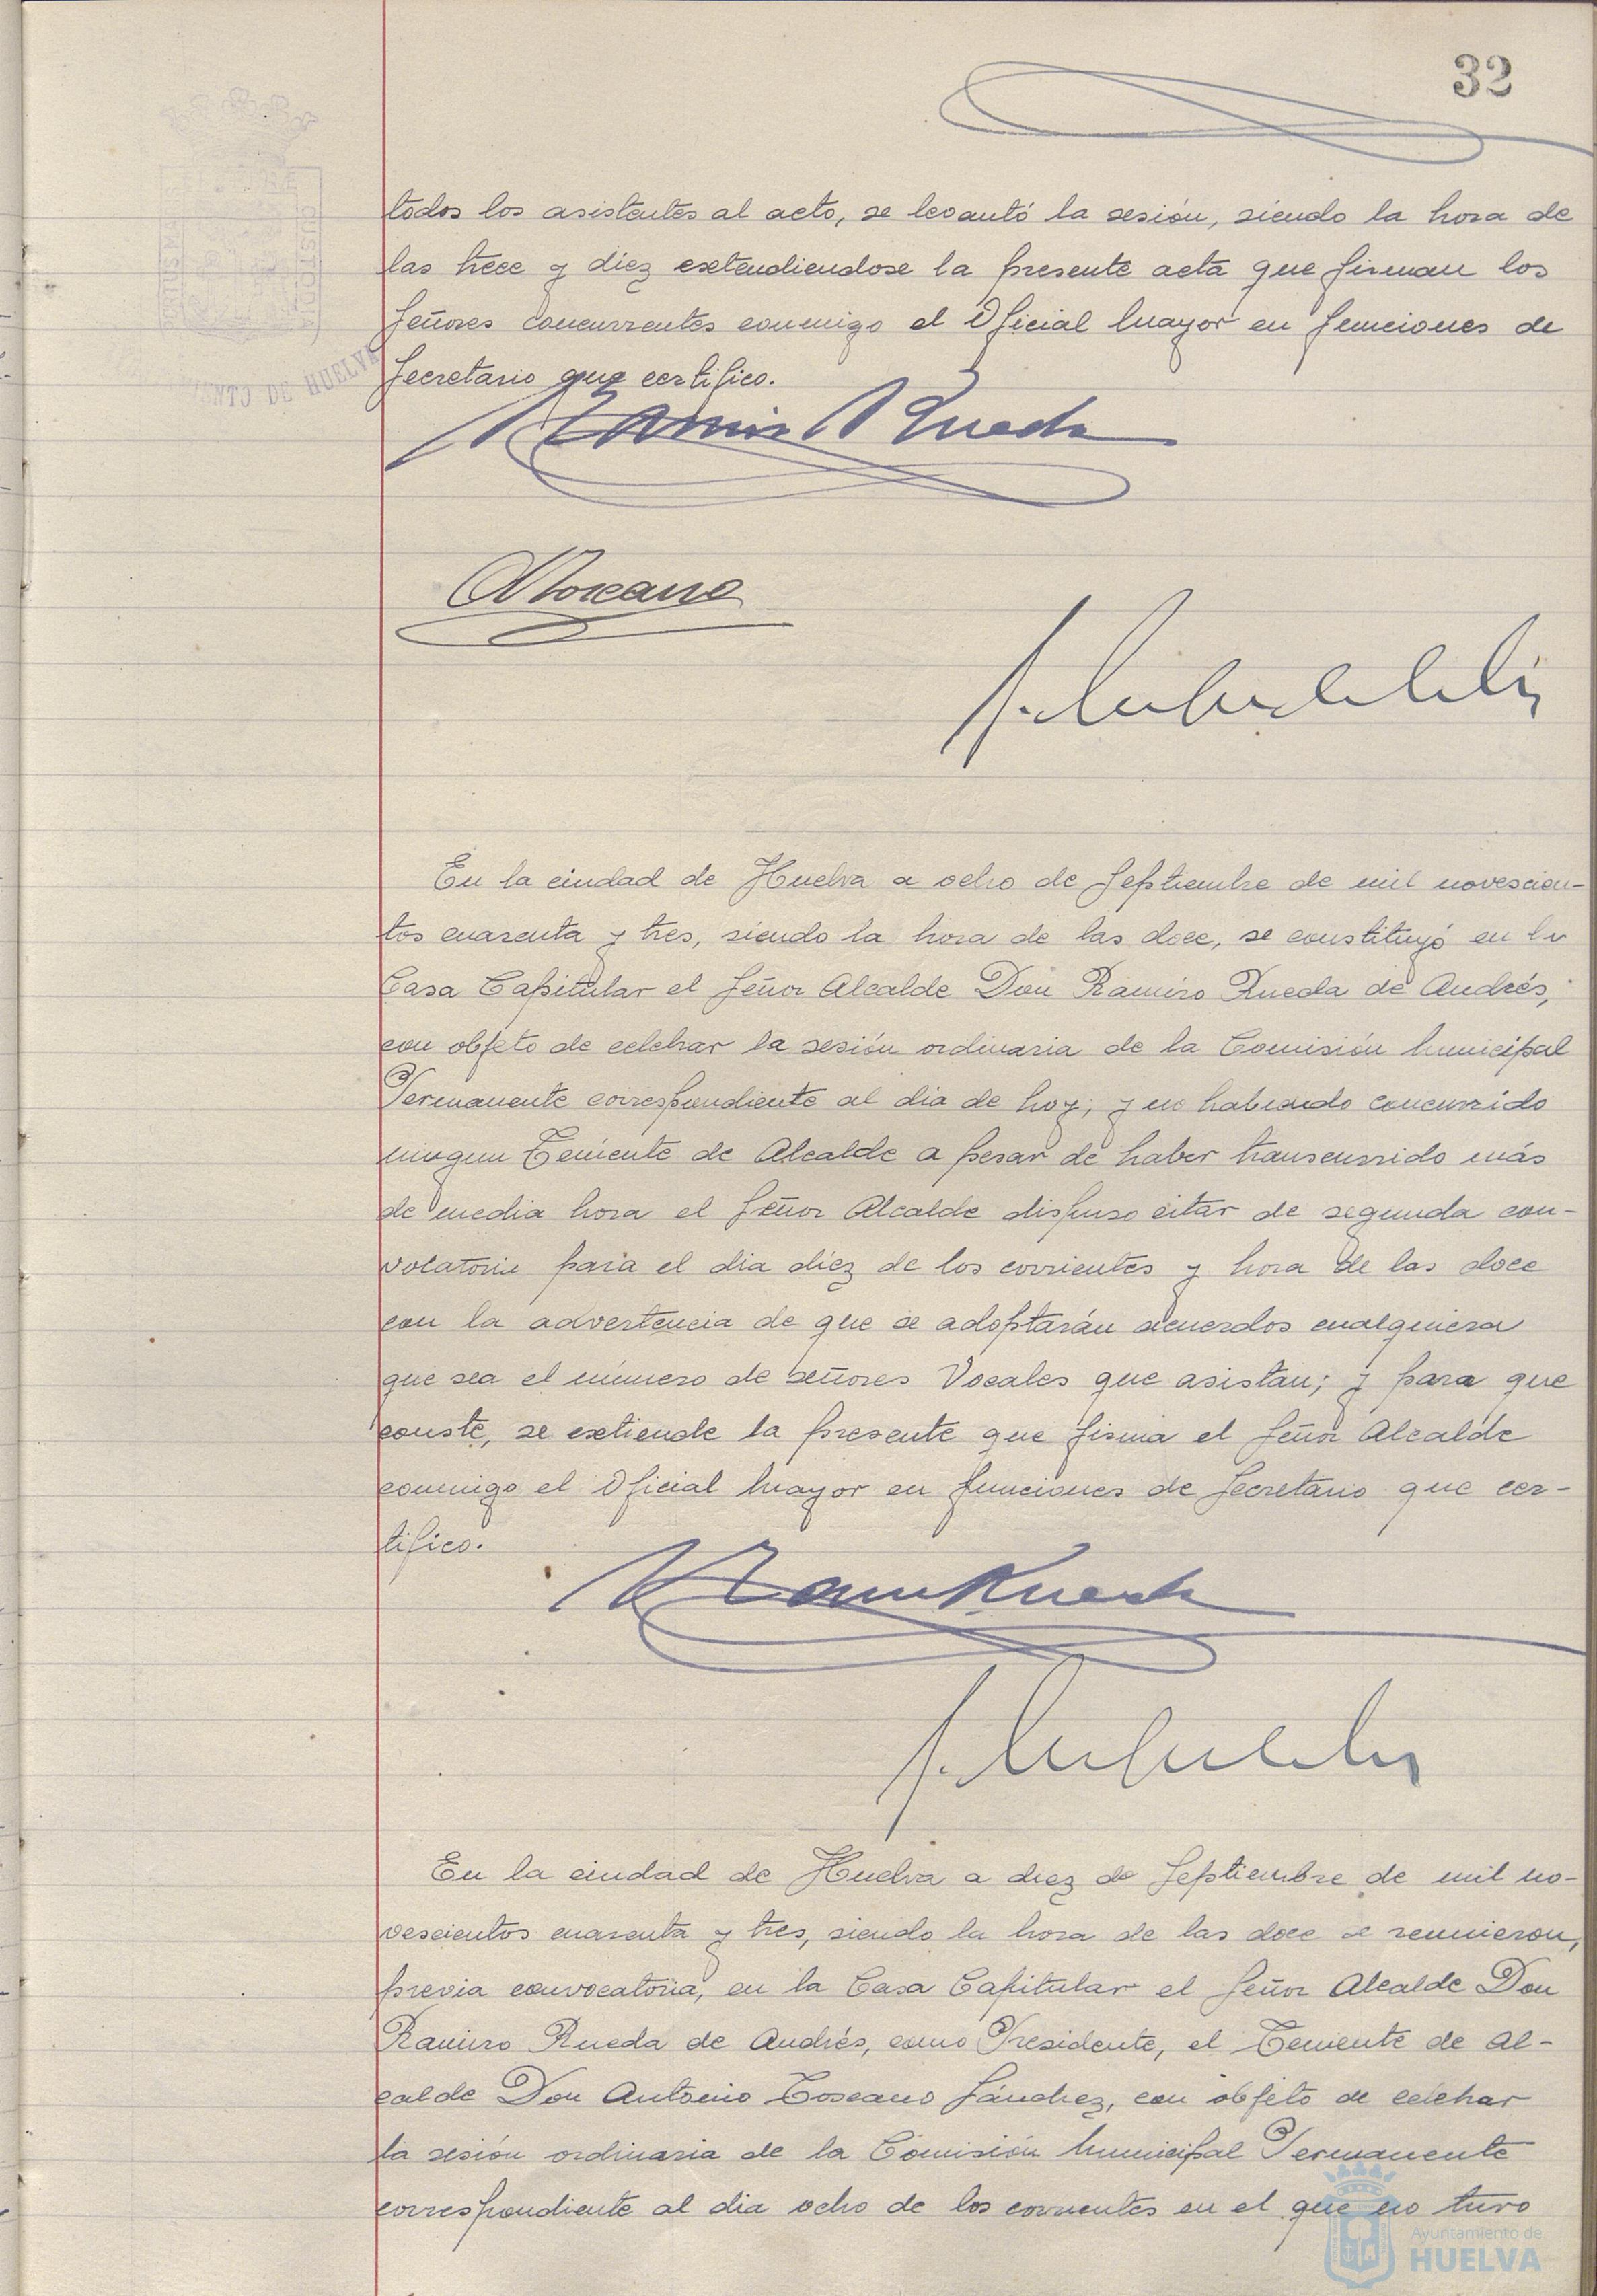 32
todos los asistentes al acto, se levantó la sesión, siendo la hora de
las trece y diez extendiendose la presente acta que firman los
Señores concurrentes conmigo el Oficial Mayor en funciones de
Secretario que certifico.
Ramiro Rueda
A Toscano
En la ciudad de Huelva a ocho de Septiembre de mil novescien-
tos cuarenta y tres, siendo la hora de las doce, se constituyó en la
Casa Capitular el Señor Alcalde Don Ramiro Rueda de Andrés,
con objeto de celebrar la sesión ordinaria de la Comisión Municipal
Permanente correspondiente al dia de hoy; y no habiendo concurrido
ningun Teniente de Alcalde a pesar de haber transcurrido más
de media hora el Señor Alcalde dispuso citar de segunda con-
vocatoria para el dia diez de los corrientes y hora de las doce
con la advertencia de que se adoptarán acuerdos cualquiera
que sea el número de señores Vocales que asistan; y para que
conste, se extiende la presente que firma el Señor Alcalde
conmigo el Oficial Mayor en funciones de Secretario que cer-
tifico.
Ramiro Rueda
En la ciudad de Huelva a diez de Septiembre de mil no-
vescientos cuarenta y tres, siendo la hora de las doce se reunieron,
previa convocatoria, en la Casa Capitular el Señor Alcalde Don
Ramiro Rueda de Andrés, como Presidente, el Teniente de Al-
calde Don Antonio Toscano Sánchez, con objeto de celebrar
la sesión ordinaria de la Comisión Municipal Permanente
correspondiente al dia ocho de los corrientes en el que no tuvo
NTO DE HUELVA
Ayuntamiento de
HUELVA